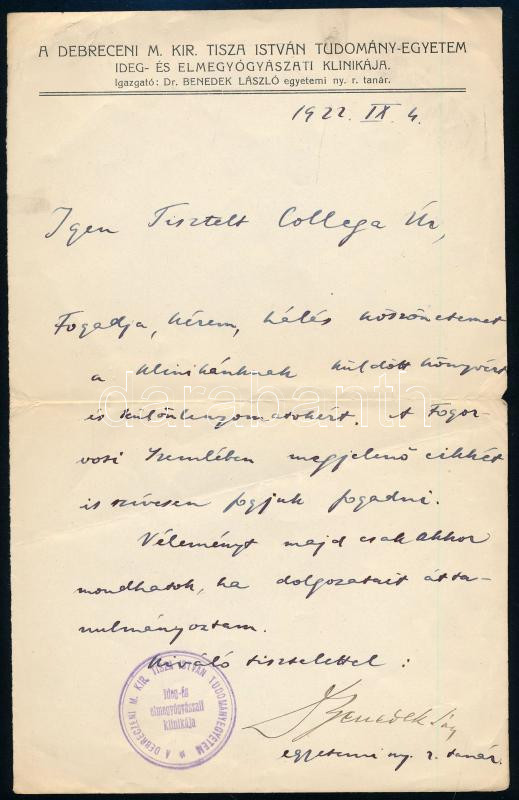 A DEBRECENI M. KIR. TISZA ISTVÁN TUDOMÁNY-EGYETEM
IDEG- ÉS ELMEGYÓGYÁSZATI KLINIKÁJA.
Igazgató: Dr. BENEDEK LÁSZLÓ egyetemi ny. r. tanár.
1922. IX. 4.
Igen Tisztelt Collega Úr,
Fogadja, kérem, hálás köszönetemet
a klinikánknak küldött könyvért
és különlenyomatokért. A Fogor-
vosi Szemlében megjelenő cikkét
is szívesen fogjuk fogadni.
Véleményt majd csak akkor
mondhatok, ha dolgozatait átta-
nulmányoztam.
Kiváló tisztelettel:
Benedek László
egyetemi ny. r. tanár.
A DEBRECZENI M. KIR. TISZA ISTVÁN TUDOMÁNYEGYETEM
Ideg-és
elmegyógyászati
klinikája
darabanth